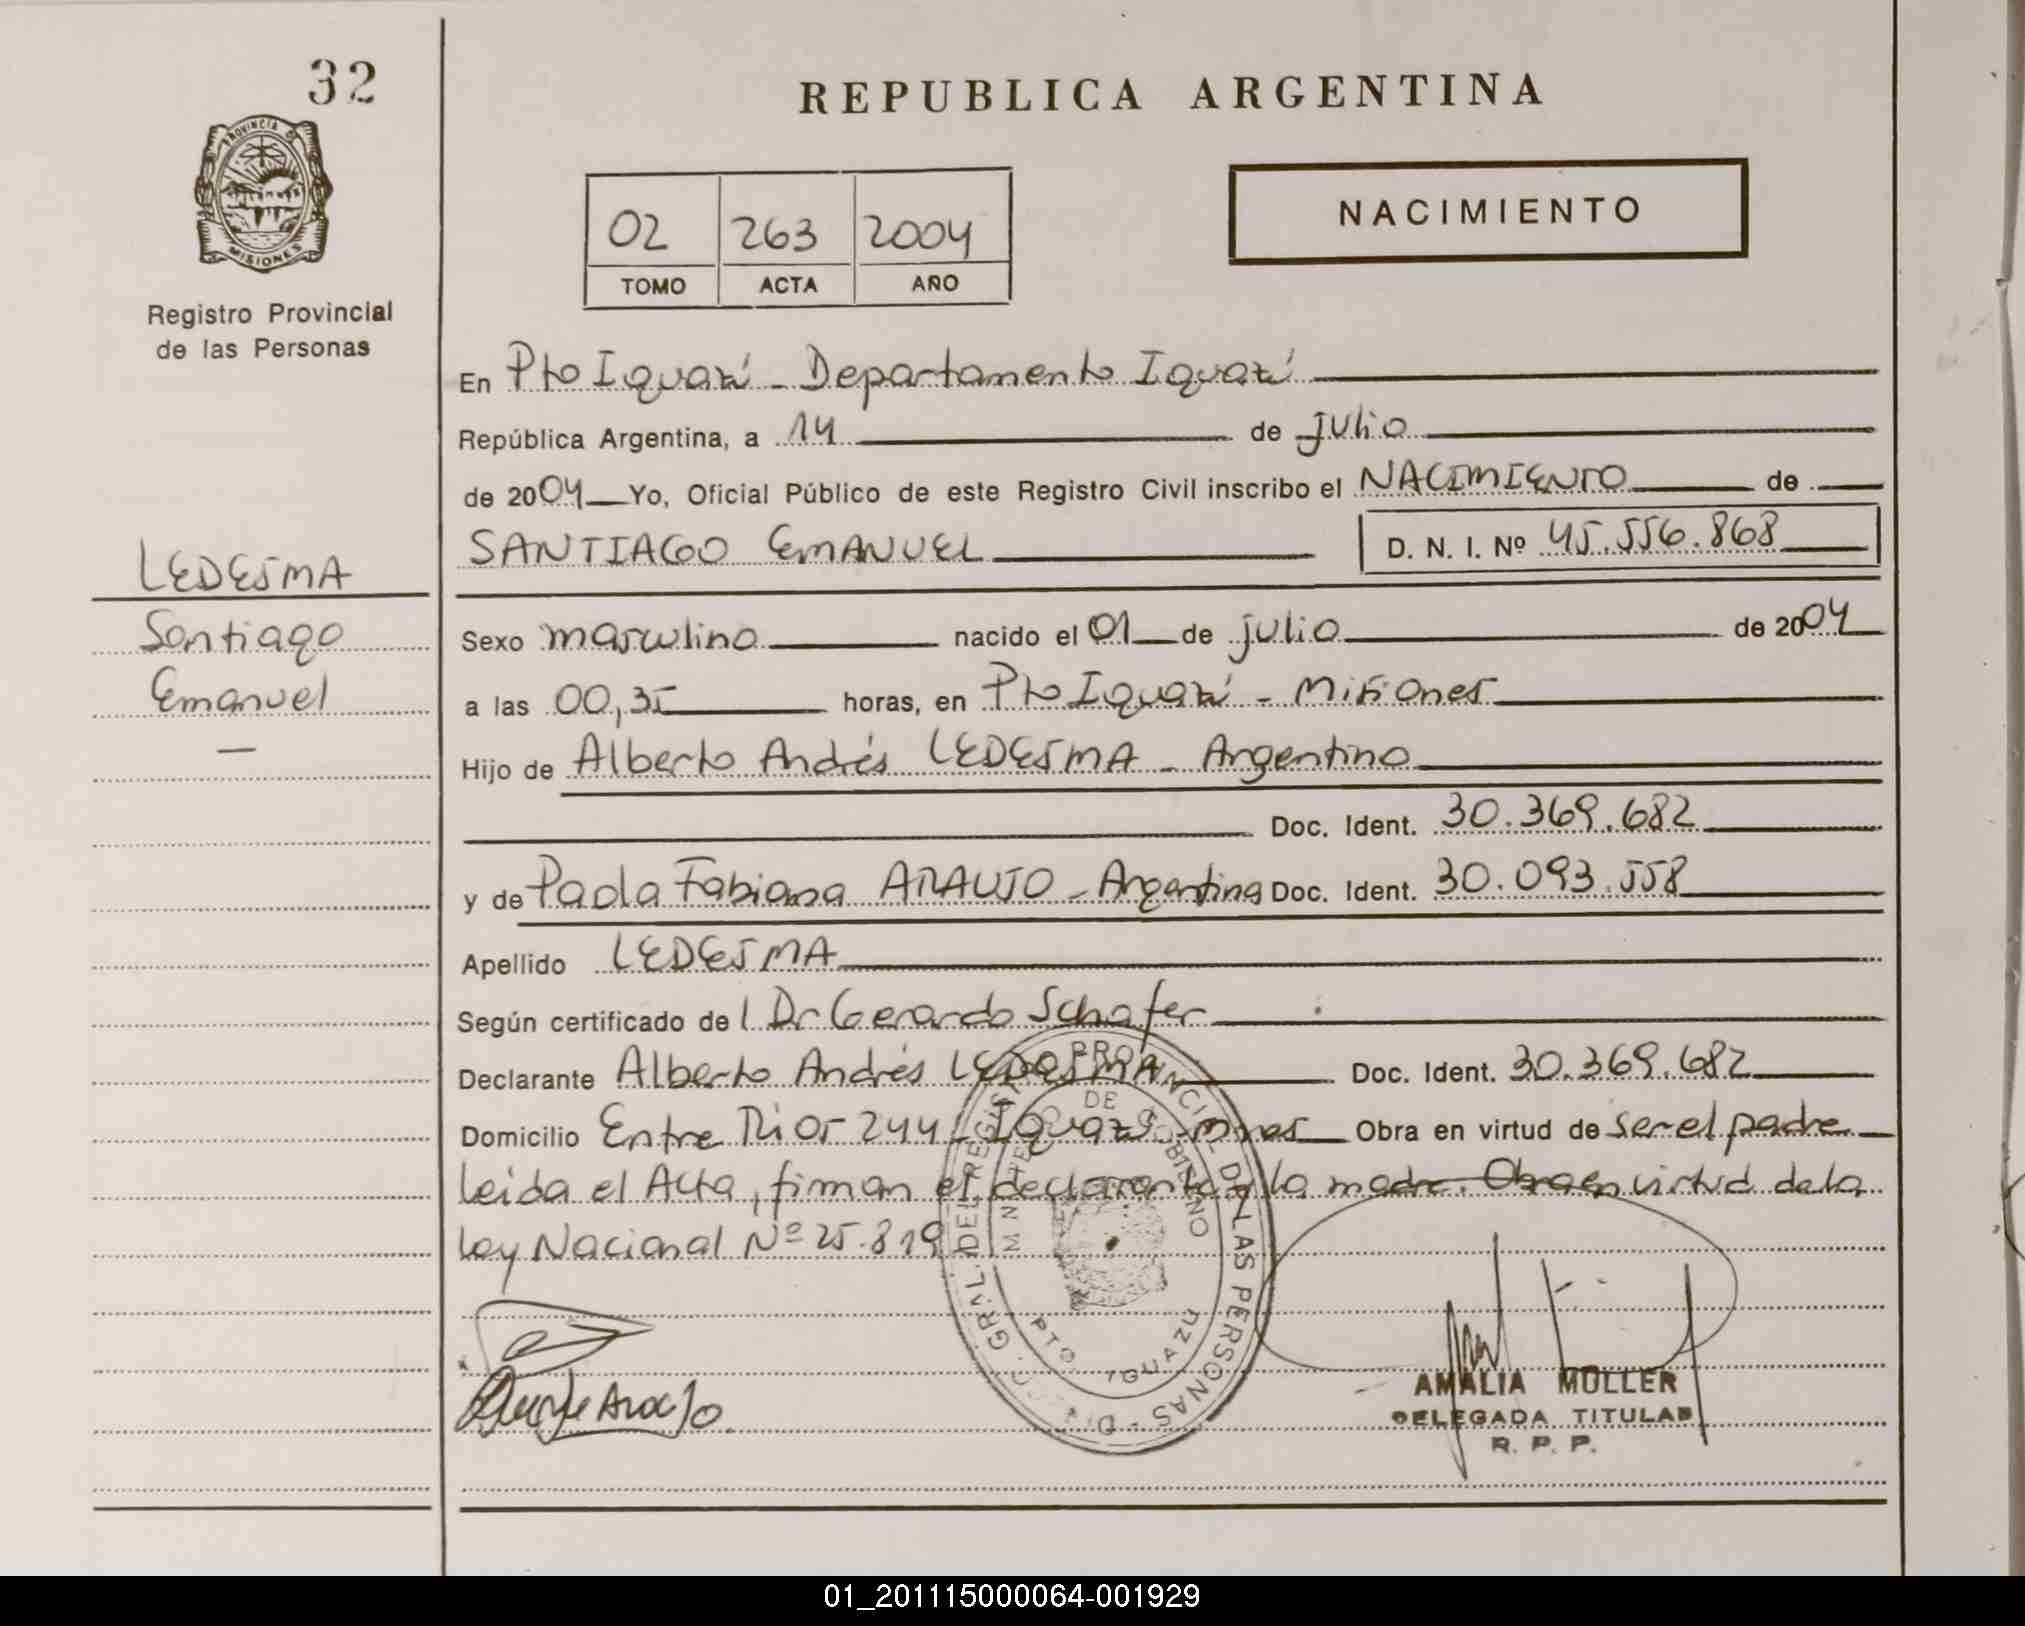 32
PROVINCIA DE
MISIONES
Registro Provincial
de las Personas
LEDESMA
Santiago
Emanuel
—
REPUBLICA ARGENTINA
02 263 2004
TOMO ACTA AÑO
NACIMIENTO
En Pto Iguazú - Departamento Iguazú
República Argentina, a 14 de julio
de 2004 Yo, Oficial Público de este Registro Civil inscribo el NACIMIENTO de
SANTIAGO EMANUEL D. N. I. Nº 45.556.868
Sexo masculino nacido el 01 de julio de 2004
a las 00,35 horas, en Pto Iguazú - Misiones
Hijo de Alberto Andrés LEDESMA - Argentino
Doc. Ident. 30.369.682
y de Paola Fabiana ARAUJO - Argentina Doc. Ident. 30.093.558
Apellido LEDESMA
Según certificado del Dr Gerardo Schafer
Declarante Alberto Andrés LEDESMA Doc. Ident. 30.369.682
Domicilio Entre Rios 244 - Iguazú - Mnes Obra en virtud de ser el padre
Leida el Acta, firman el declarante y la madre. Obra en virtud de la
Ley Nacional Nº 25.819
DIR. GRAL. DEL REGISTRO PROVINCIAL DE LAS PERSONAS
MINISTERIO DE GOBIERNO
PTO. IGUAZU
Araujo
AMALIA MULLER
DELEGADA TITULAR
R. P. P.
01_201115000064-001929